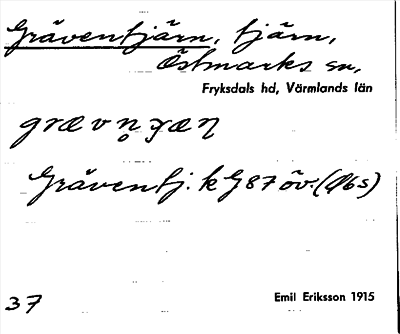 Gräventjärn, tjärn,
Östmarks sn,
Fryksdals hd, Värmlands län
grævn̥ ɟæɳ
Gräventj. k G 87 öv. (Öbs)
37
Emil Eriksson 1915